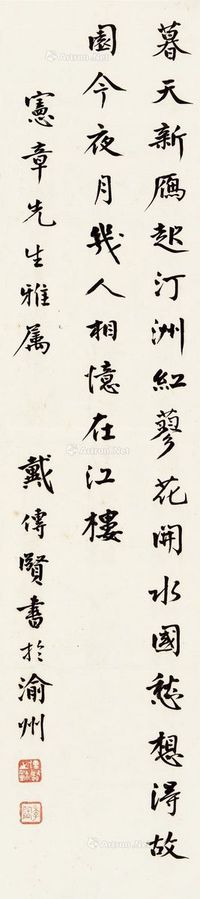 暮天新鴈起汀洲紅蓼花開水國愁想得故
園今夜月幾人相憶在江樓
憲章先生雅属
戴傳賢書於渝州